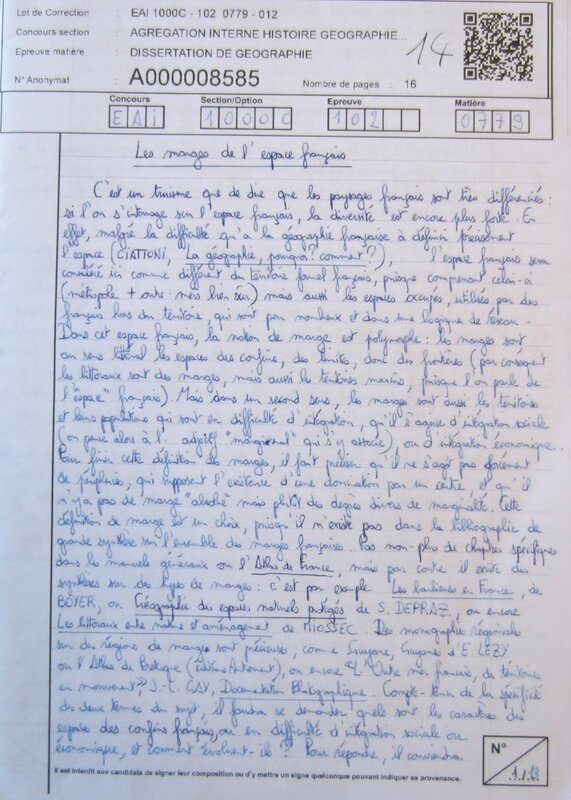 Lot de Correction : EAI 1000C - 102 0779 - 012
Concours section : AGREGATION INTERNE HISTOIRE GEOGRAPHIE...
Epreuve matière : DISSERTATION DE GEOGRAPHIE
N° Anonymat : A000008585 Nombre de pages : 16
14
Concours Section/Option Epreuve Matière
EAI 1000C 102 0779
Les marges de l'espace français
C'est un truisme que de dire que les paysages français sont très différenciés :
si l'on s'interroge sur l'espace français, la diversité est encore plus forte. En
effet, malgré la difficulté qu'a la géographie française à définir précisément
l'espace (CIATTONI, La géographie, pourquoi ? comment ?), l'espace français sera
considéré ici comme différent du territoire formel français, puisque comprenant celui-ci
(métropole + outre-mers bien sûr) mais aussi les espaces occupés, utilisés par des
français hors du territoire, qui sont peu nombreux et dans une logique de réseau.
Dans cet espace français, la notion de marge est polymorphe : les marges sont
au sens littéral les espaces des confins, des limites, donc des frontières (par conséquent
les littoraux sont des marges, mais aussi les territoires marins, puisque l'on parle de
l'"espace" français). Mais dans un second sens, les marges sont aussi les territoires
et leurs populations qui sont en difficulté d'intégration, qu'il s'agisse d'intégration sociale
(on pense alors à l'adjectif "marginal" qui s'y associe), ou d'intégration économique.
Pour finir cette définition des marges, il faut préciser qu'il ne s'agit pas forcément
de périphéries, qui supposent l'existence d'une domination par un centre, et qu'il
n'y a pas de marge "absolue" mais plutôt des degrés divers de marginalité. Cette
définition de marge est un choix, puisqu'il n'existe pas dans la bibliographie de
grande synthèse sur l'ensemble des marges françaises. Pas non plus de chapitres spécifiques
dans les manuels généraux ou l'Atlas de France, mais par contre il existe des
synthèses sur des types de marges : c'est par exemple Les banlieues en France, de
BOYER, ou Géographie des espaces naturels protégés de S. DEPRAZ, ou encore
Les littoraux entre nature et aménagement de MIOSSEC. Des monographies régionales
sur des régions de marges sont précieuses, comme Guyane, Guyanes d'E. LEZY
ou l'Atlas de Bretagne (Editions Autrement), ou encore "L'Outre mer français, des territoires
en mouvement" J.-C. GAY, Documentation Photographique. Compte-tenu de la spécificité
des deux termes du sujet, il faudra se demander quels sont les caractères des
espaces des confins français, ou en difficulté d'intégration sociale ou
économique, et comment évoluent-ils ? Pour répondre, il conviendra
N°
1/13
Il est interdit aux candidats de signer leur composition ou d'y mettre un signe quelconque pouvant indiquer sa provenance.